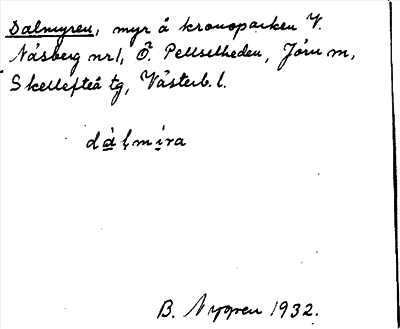 Dalmyren, myr å kronoparken V.
Näsberg nr 1, Ö. Pellselheden, Jörn m,
Skellefteå tg, Västerb. l.
dàlmira
B. Nygren 1932.